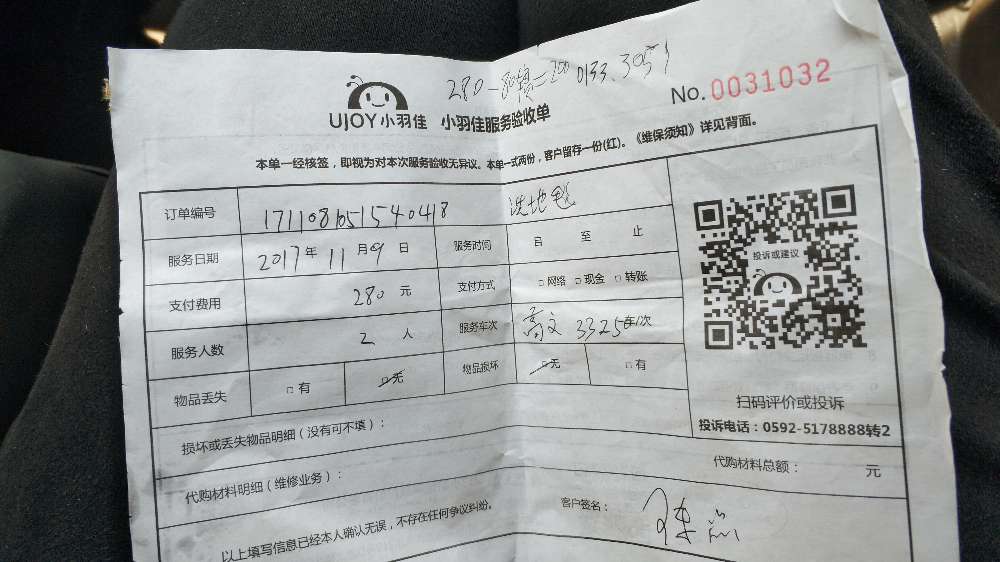 280-80=200 0133.305
No. 0031032
UJOY小羽佳 小羽佳服务验收单
本单一经核签，即视为对本次服务验收无异议。本单一式两份，客户留存一份(红)。《维保须知》详见背面。
订单编号 171108151540418 洗地毯
服务日期 2017年 11月 9日 服务时间 自 至 止
支付费用 280元 支付方式 □网络 □现金 □转账
服务人数 2人 服务车次 高文 3325车/次
物品丢失 □有 □无 物品损坏 □无 □有
投诉或建议
扫码评价或投诉
投诉电话：0592-5178888转2
损坏或丢失物品明细（没有可不填）：
代购材料明细（维修业务）： 代购材料总额： 元
以上填写信息已经本人确认无误，不存在任何争议纠纷。 客户签名： 陈